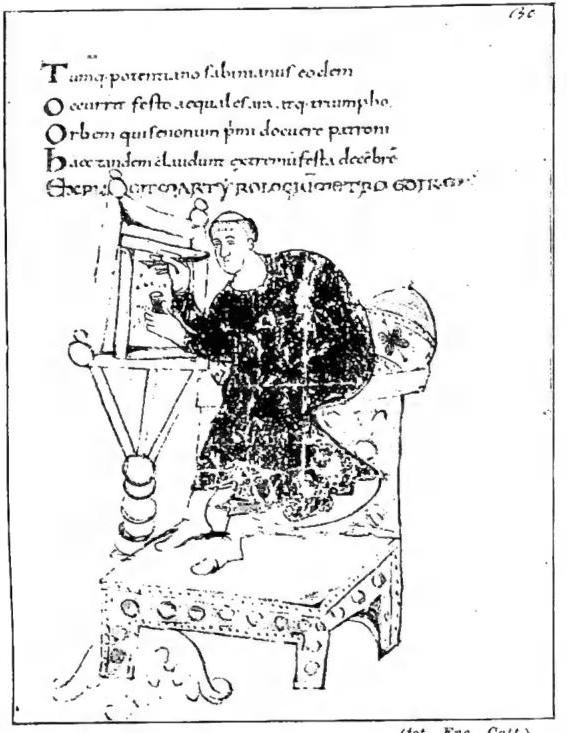 130
Tumq; potentiano sabinianus eodem
Occurrit festo aequales ara atq; triumpho.
Orbem qui senonum p̄mi docuere patroni
Haec tandem claudunt extremū festa decēbrē
EXPLICIT MARTYROLOGIŪ METRO EDITŪ
(fot. Enc. Catt.)